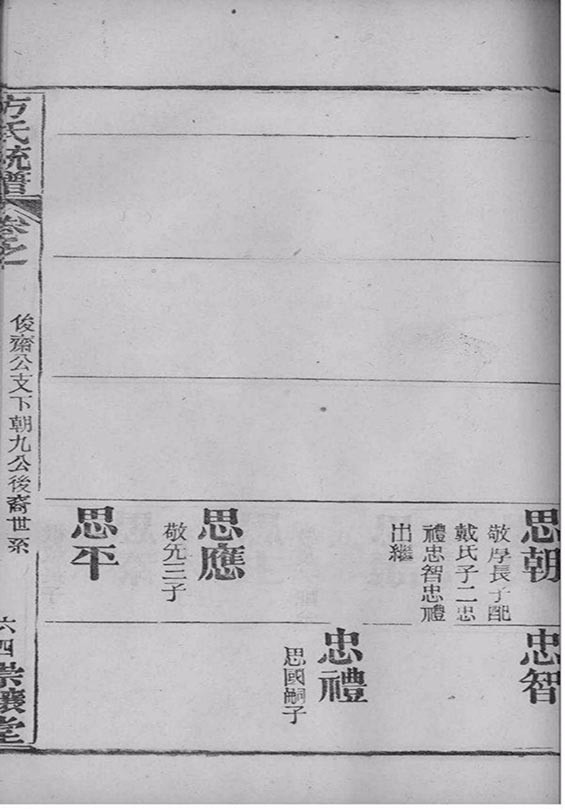 思朝
敬學長子配
戴氏子二忠
禮忠智忠禮
出繼
思應
敬先三子
思平
忠智
忠禮
思國嗣子
方氏統譜
卷之一
俊齋公支下朝九公後裔世系
六四
堂